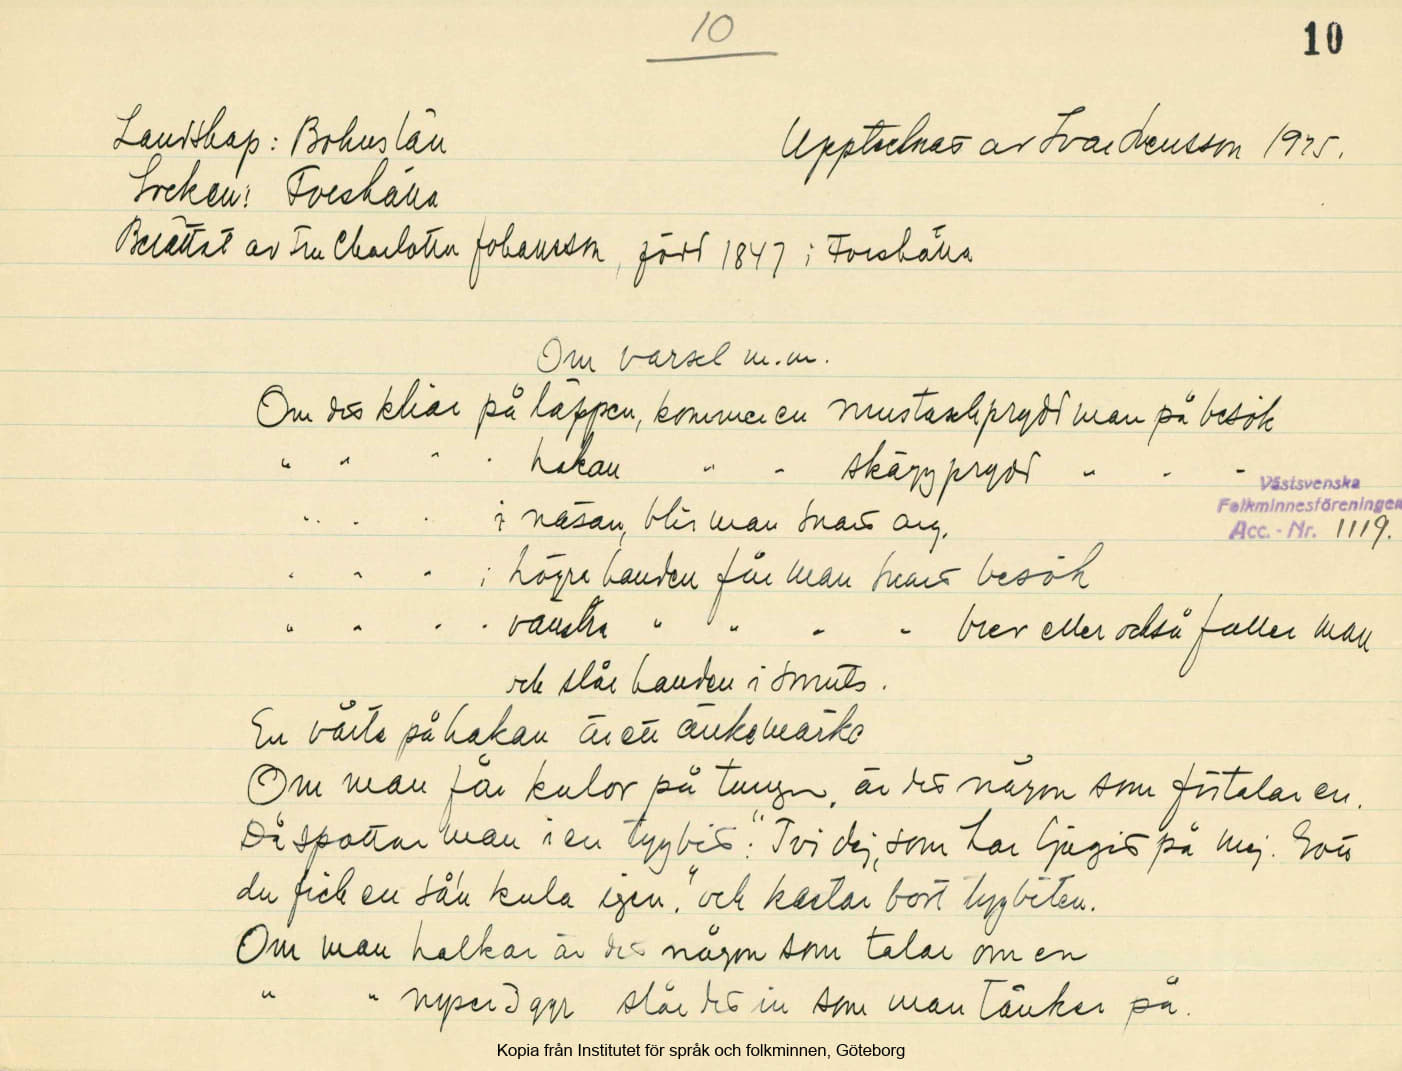 10
10
Landskap: Bohuslän
Upptecknat av Ivar Arensson 1925.
Socken: Foreshälla
Berättat av Fru Charlotta Johansson, född 1847 i Foreshälla
Om varsel m.m.
Om det kliar på läppen, kommer en mustaschprydd man på besök
" " " " hakan " " skäggprydd " " "
" " " i näsan, blir man snart arg.
" " " i högra handen får man snart besök
" " " " vänstra " " " " brev eller också faller man
och slår handen i smuts.
En vårta på hakan är ett änkemärke
Om man får kulor på tungan, är det någon som förtalar en.
Då spottar man i en tygbit: "Tvi dej, som har ljugit på mej. Gott
du fick en sån kula igen." och kastar bort tygbiten.
Om man halkar är det någon som talar om en
" " nyser 3 ggr slår det in som man tänker på.
Västsvenska
Folkminnesföreningen
Acc.-Nr. 1119.
Kopia från Institutet för språk och folkminnen, Göteborg